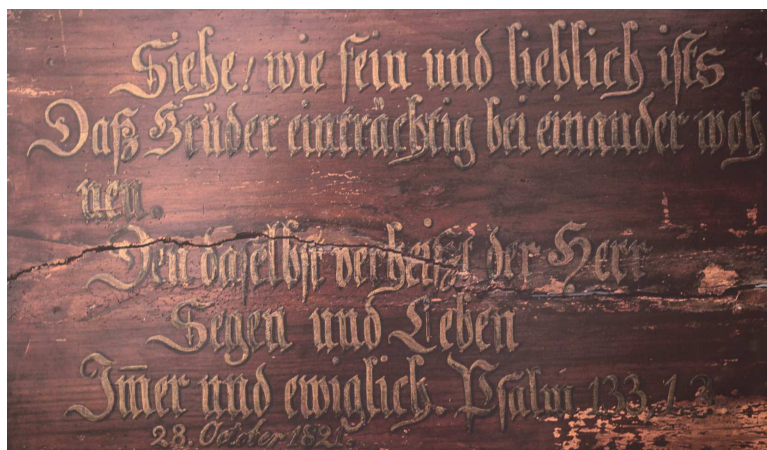 Siehe! wie fein und lieblich ists
Daß Brüder einträchtig bei einander woh
nen.
Den daselbst verheißt der Herr
Segen und Leben
Im̅er und ewiglich. Psalm 133. 1. 3.
28. October 1821.